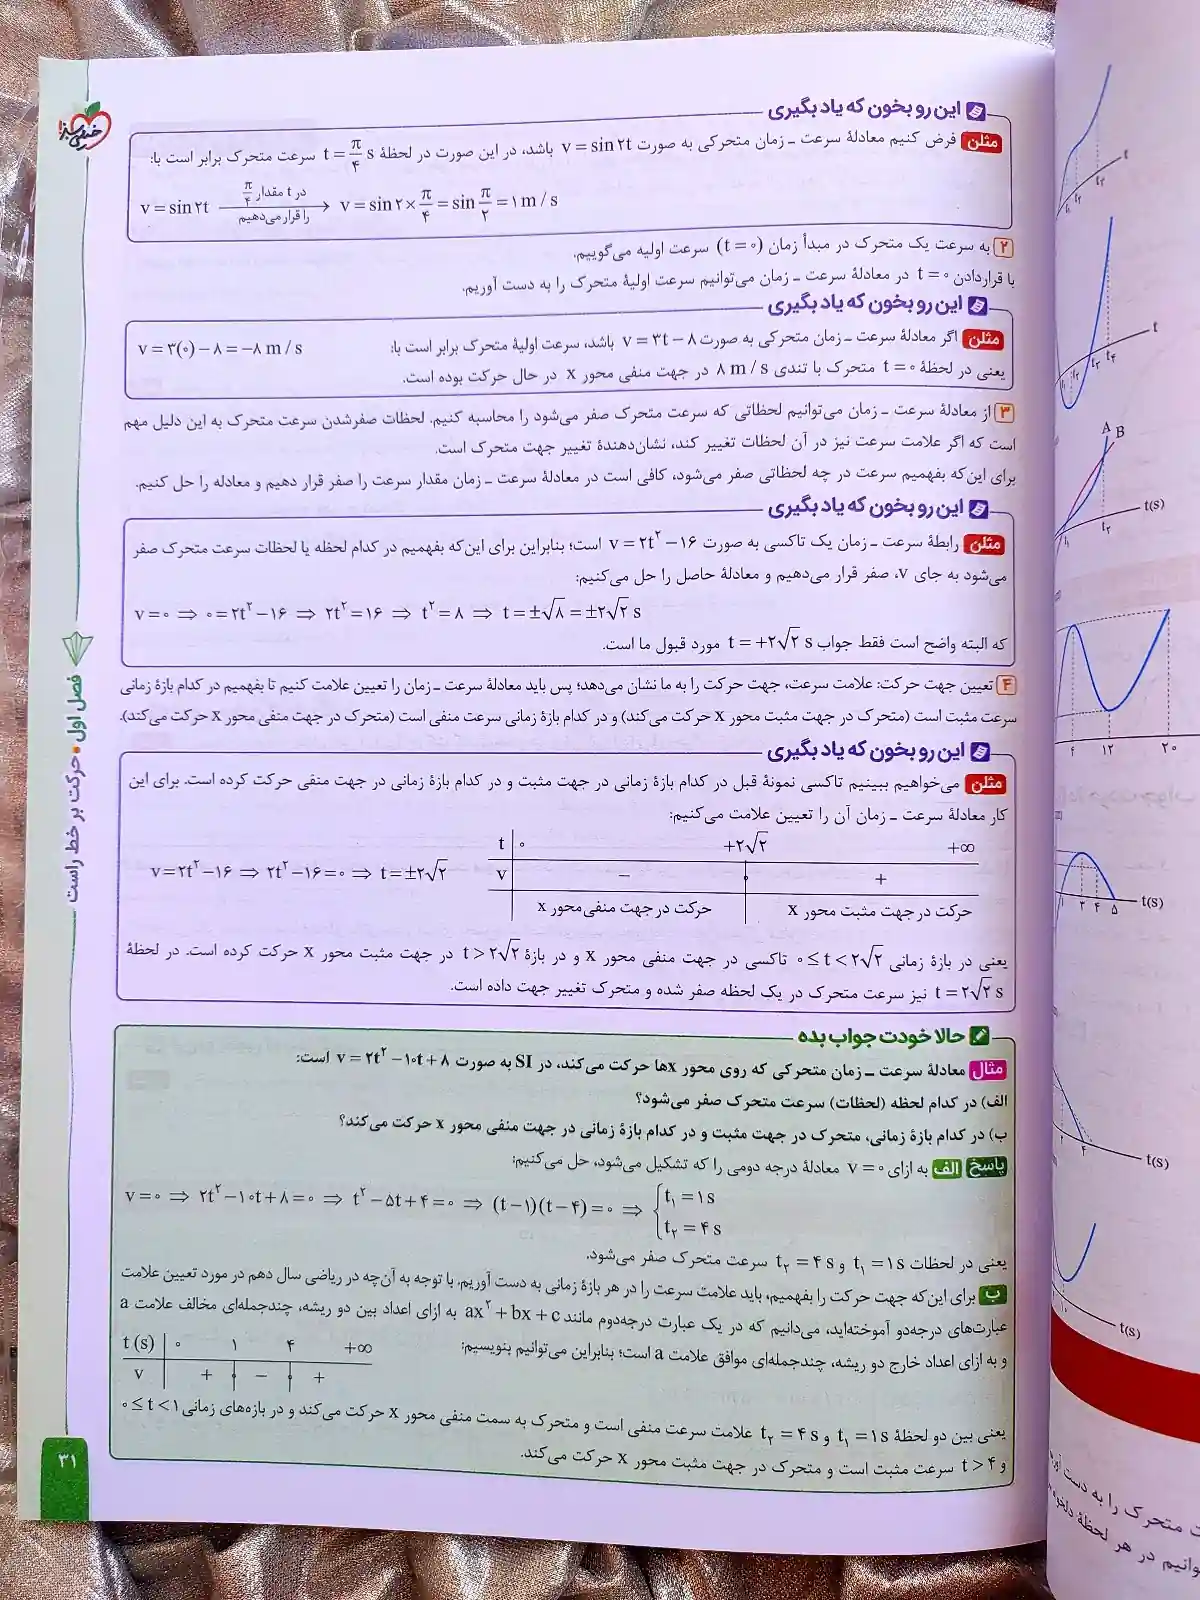 خیلی سبز
این رو بخون که یاد بگیری
مثلن فرض کنیم معادلهٔ سرعت ـ زمان متحرکی به صورت v = sin ۲t باشد، در این صورت در لحظهٔ t = π/۴ s سرعت متحرک برابر است با:
v = sin ۲t در t مقدار π/۴ را قرار می‌دهیم → v = sin ۲ × π/۴ = sin π/۲ = ۱ m/s
۲ به سرعت یک متحرک در مبدأ زمان (t = ۰) سرعت اولیه می‌گوییم.
با قراردادن t = ۰ در معادلهٔ سرعت ـ زمان می‌توانیم سرعت اولیهٔ متحرک را به دست آوریم.
این رو بخون که یاد بگیری
مثلن اگر معادلهٔ سرعت ـ زمان متحرکی به صورت v = ۳t − ۸ باشد، سرعت اولیهٔ متحرک برابر است با: v = ۳(۰) − ۸ = −۸ m/s
یعنی در لحظهٔ t = ۰ متحرک با تندی ۸ m/s در جهت منفی محور x در حال حرکت بوده است.
۳ از معادلهٔ سرعت ـ زمان می‌توانیم لحظاتی که سرعت متحرک صفر می‌شود را محاسبه کنیم. لحظات صفرشدن سرعت متحرک به این دلیل مهم
است که اگر علامت سرعت نیز در آن لحظات تغییر کند، نشان‌دهندهٔ تغییر جهت متحرک است.
برای این‌که بفهمیم سرعت در چه لحظاتی صفر می‌شود، کافی است در معادلهٔ سرعت ـ زمان مقدار سرعت را صفر قرار دهیم و معادله را حل کنیم.
این رو بخون که یاد بگیری
مثلن رابطهٔ سرعت ـ زمان یک تاکسی به صورت v = ۲t² − ۱۶ است؛ بنابراین برای این‌که بفهمیم در کدام لحظه یا لحظات سرعت متحرک صفر
می‌شود به جای v، صفر قرار می‌دهیم و معادلهٔ حاصل را حل می‌کنیم:
v = ۰ ⇒ ۰ = ۲t² − ۱۶ ⇒ ۲t² = ۱۶ ⇒ t² = ۸ ⇒ t = ±√۸ = ±۲√۲ s
که البته واضح است فقط جواب t = +۲√۲ s مورد قبول ما است.
۴ تعیین جهت حرکت: علامت سرعت، جهت حرکت را به ما نشان می‌دهد؛ پس باید معادلهٔ سرعت ـ زمان را تعیین علامت کنیم تا بفهمیم در کدام بازهٔ زمانی
سرعت مثبت است (متحرک در جهت مثبت محور x حرکت می‌کند) و در کدام بازهٔ زمانی سرعت منفی است (متحرک در جهت منفی محور x حرکت می‌کند).
این رو بخون که یاد بگیری
مثلن می‌خواهیم ببینیم تاکسی نمونهٔ قبل در کدام بازهٔ زمانی در جهت مثبت و در کدام بازهٔ زمانی در جهت منفی حرکت کرده است. برای این
کار معادلهٔ سرعت ـ زمان آن را تعیین علامت می‌کنیم:
t ۰ +۲√۲ +∞
v = ۲t² − ۱۶ ⇒ ۲t² − ۱۶ = ۰ ⇒ t = ±۲√۲
v − ۰ +
حرکت در جهت منفی محور x حرکت در جهت مثبت محور x
یعنی در بازهٔ زمانی ۰ ≤ t < ۲√۲ تاکسی در جهت منفی محور x و در بازهٔ t > ۲√۲ در جهت مثبت محور x حرکت کرده است. در لحظهٔ
t = ۲√۲ s نیز سرعت متحرک در یک لحظه صفر شده و متحرک تغییر جهت داده است.
حالا خودت جواب بده
مثال معادلهٔ سرعت ـ زمان متحرکی که روی محور xها حرکت می‌کند، در SI به صورت v = ۲t² − ۱۰t + ۸ است:
الف) در کدام لحظه (لحظات) سرعت متحرک صفر می‌شود؟
ب) در کدام بازهٔ زمانی، متحرک در جهت مثبت و در کدام بازهٔ زمانی در جهت منفی محور x حرکت می‌کند؟
پاسخ الف به ازای v = ۰ معادلهٔ درجه دومی را که تشکیل می‌شود، حل می‌کنیم:
v = ۰ ⇒ ۲t² − ۱۰t + ۸ = ۰ ⇒ t² − ۵t + ۴ = ۰ ⇒ (t − ۱)(t − ۴) = ۰ ⇒ { t₁ = ۱ s
t₂ = ۴ s
یعنی در لحظات t₁ = ۱ s و t₂ = ۴ s سرعت متحرک صفر می‌شود.
ب برای این‌که جهت حرکت را بفهمیم، باید علامت سرعت را در هر بازهٔ زمانی به دست آوریم. با توجه به آن‌چه در ریاضی سال دهم در مورد تعیین علامت
عبارت‌های درجه‌دو آموخته‌اید، می‌دانیم که در یک عبارت درجه‌دوم مانند ax² + bx + c به ازای اعداد بین دو ریشه، چندجمله‌ای مخالف علامت a
و به ازای اعداد خارج دو ریشه، چندجمله‌ای موافق علامت a است؛ بنابراین می‌توانیم بنویسیم:
t (s) ۰ ۱ ۴ +∞
v + ۰ − ۰ +
یعنی بین دو لحظهٔ t₁ = ۱ s و t₂ = ۴ s علامت سرعت منفی است و متحرک به سمت منفی محور x حرکت می‌کند و در بازه‌های زمانی ۰ ≤ t < ۱
و t > ۴ سرعت مثبت است و متحرک در جهت مثبت محور x حرکت می‌کند.
فصل اول • حرکت بر خط راست
۳۱
t
t₁ t₂ t₳
t
t₁ t₂ t₃ t₴
A B
t(s)
t₁ t₂
۴ ۱۲ ۲۰
t(s)
۱ ۳ ۴ ۵
t(s)
۴
t(s)
۱۰
ت متحرک را به دست
وانیم در هر لحظهٔ